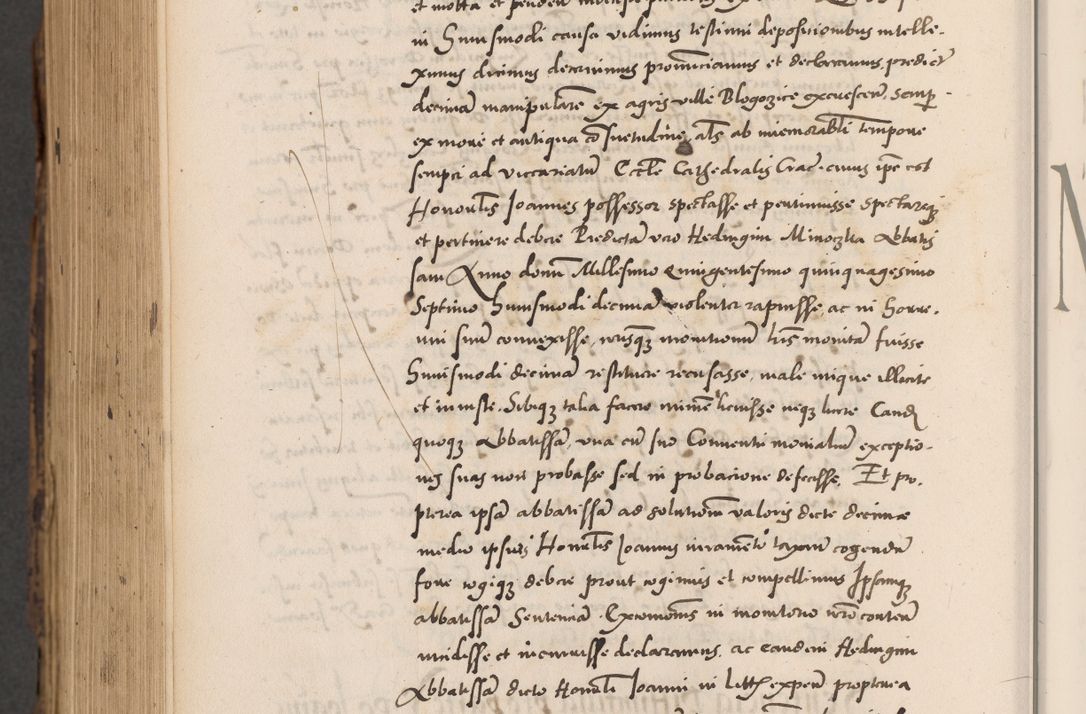 in huiusmodi causa vidimus testium depositionibus intelle-
ximus dicimus decernimus pronunciamus et declaramus predict
decimā manipularē ex agris ville Blogozice excrescen̄ semp
ex more et antiqua cōsuetudine als ab immemorabli tempore
semp ad vicariatū Eccle Cathedralis Crac̄ cuius ipe est
Honorabls Joannes possessor spectasse et pertinuisse spectareqȝ
et pertinere debere Predictā vero Hedingim Abbatis
sam Anno domī Millesimo quingentesimo quinquagesimo
Septimo huiusmodi decimā violenter rapuisse ac in horre-
um suū convexisse, monitionū lris monitā fuisse
huiusmodi decimā restituere recusasse, male utique illicite
et iniuste. Sibiqȝ talia facere minime licuisse neqȝ licere Eand
quoqȝ Abbatissā, una cū suo Conventu monialiū exceptio-
nes suas non probasse sed in probacione defecisse. Et pro-
pterea ipsā abbatissā ad solutionē valoris dicte decimae
medio ipsius Honrabls Joannis iuramento taxatū cogendā
fore cogiqȝ debere prout cogimus et compellimus Ipsamqȝ
abbatissā Sententiā Excoīonis in monitorio nro conten̄
incidisse et incurrisse declaramus, ac eandem Hedingim
Abbatissā dicto Honrabli Joanni in litis expen̄ propterea